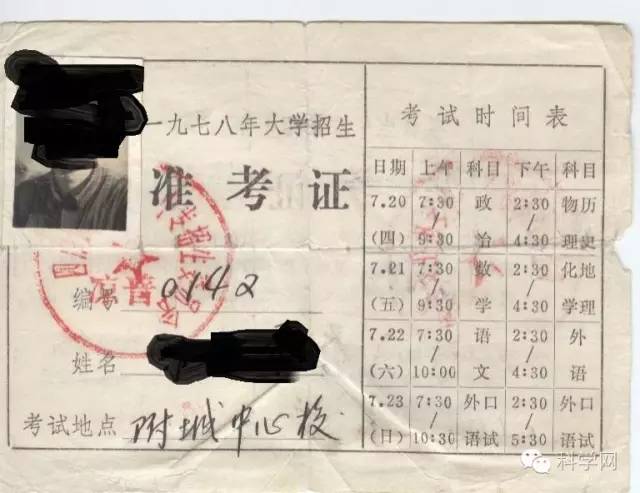 一九七八年大学招生
准考证
编号 0142
姓名
考试地点 附城中心校
考试时间表
日期 上午 科目 下午 科目
7.20 7:30 政 2:30 物历
(四) / 治 / 理史
9:30 4:30
7.21 7:30 数 2:30 化地
(五) / 学 / 学理
9:30 4:30
7.22 7:30 语 2:30 外
(六) / 文 / 语
10:00 4:30
7.23 7:30 外口 2:30 外口
(日) / 语试 / 语试
10:30 5:30
科学网